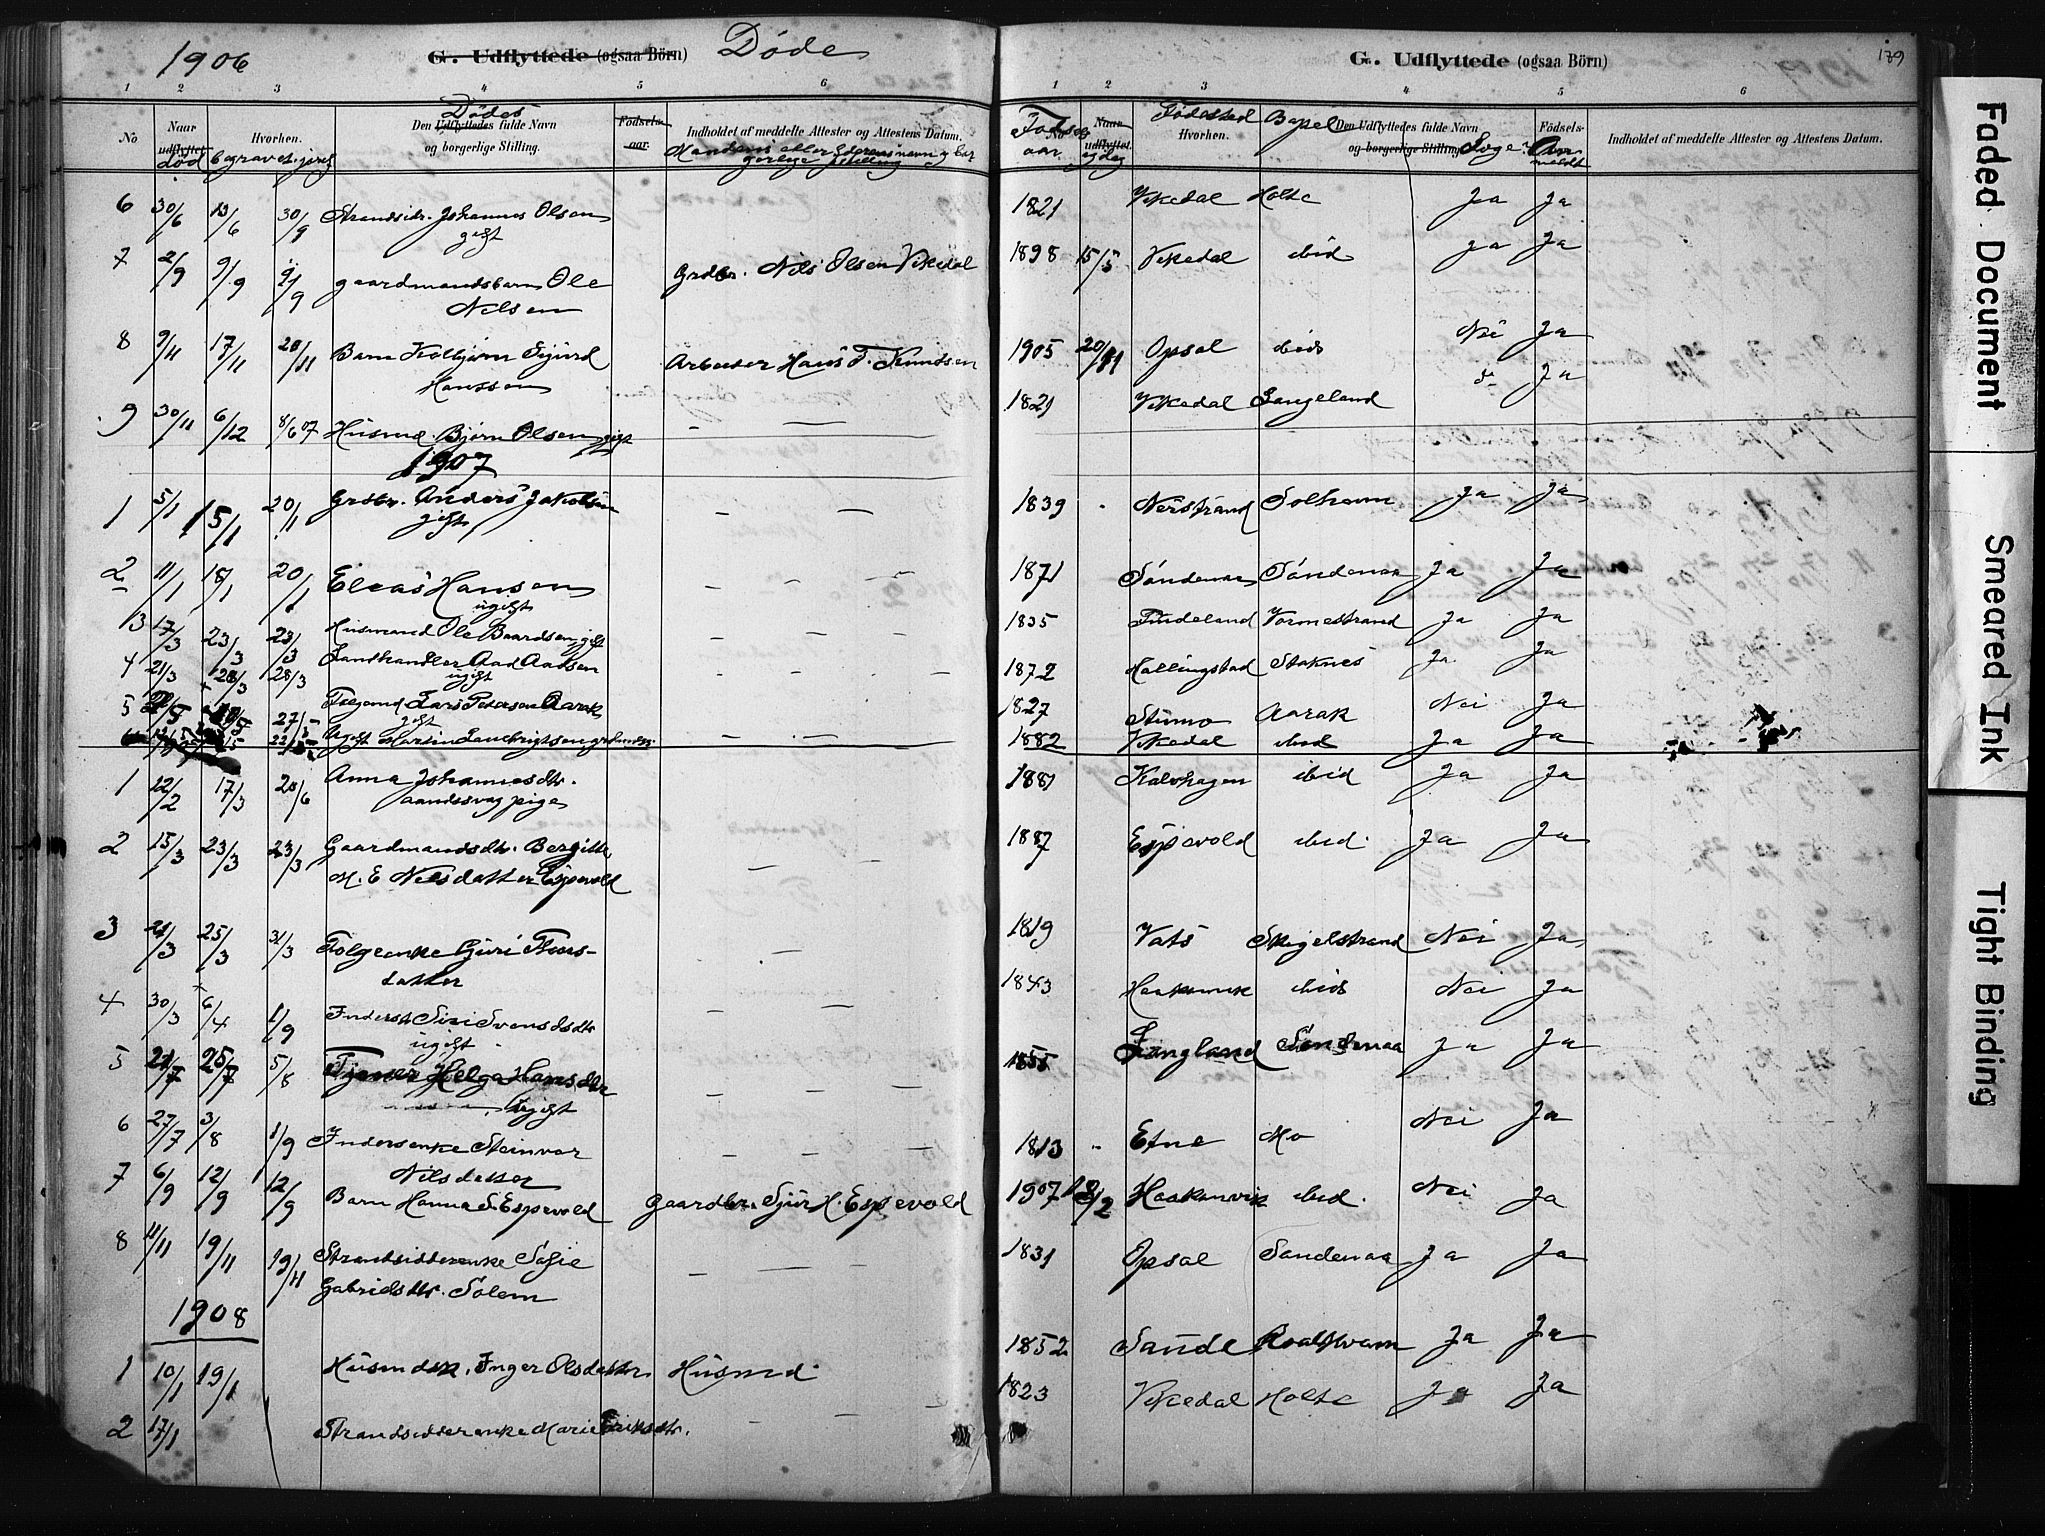 1906 G. Udflyttede (ogsaa Börn) Döde
1 2 3 4 5 6
No Naar udflyttet død Hvorhen. begravet jord Den Udflyttedes fulde Navn og borgerlige Stilling. Dødes Fødsels-aar. Indholdet af meddelte Attester og Attestens Datum.
6 30/6 13/6 30/9 Strandsidr. Johannes Olsen
gift
7 2/9 9/9 9/9 gaardmandsbarn Ole Grdbr. Nils Olsen Vikedal
Nilsen
8 9/11 17/11 28/11 Barn Kolbjørn Sjurd Arbeider Hans T. Knudsen
Hanssen
9 30/11 6/12 8/6 07 Husmd. Bjørn Olsen gift — —
1907
1 5/1 15/1 20/1 Grdbr. Anders Jakobsen — —
gift
2 11/1 18/1 20/1 Elias Hansen — — —
ugift
3 17/3 23/3 23/3 Husmand Ole Baardsen gift — — —
4 21/3 28/3 28/3 Landhandler Aad Aadsen
ugift
5 27/5 Lars Petersen Aarak
gift
Ugift Martin — —
1 22/2 17/3 20/6 Anna Johannesdtr.
aandssvag pige
2 15/3 23/3 23/3 Gaardmandsdtr. Bergitte — —
M. E. Nilsdatter Espevold
3 21/3 25/3 31/3 Folgeenke Guri — —
datter
4 30/3 6/4 1/9 Inderst Siri Svendsdtr — —
ugift
5 21/7 25/7 5/8 Tjener Helga Hansdtr — — —
Ugift
6 27/7 3/8 1/9 Indersenke Steinvor — — —
Nilsdatter
7 6/9 12/9 12/9 Barn Hanna S. Espevold Gaardbr. Sjur H. Espevold
8 11/11 19/11 19/11 Strandsidderenke Sofie — — —
Gabrielsdtr. Solem
1908
1 10/1 19/1 Inger Olsdatter Husmd.
2 17/1 Strandsidderenke Marie Eriksdtr. — — —
G. Udflyttede (ogsaa Börn) 179
1 2 3 4 5 6
Fødselsaar. No Naar udflyttet. og dag Fødested Hvorhen. Bopæl Den Udflyttedes fulde Navn og borgerlige Stilling Fødsels- Indholdet af meddelte Attester og Attestens Datum.
1821 Vikedal Holte Ja Ja
1898 15/5 Vikedal ibid Ja Ja
1905 20/11 Opsal ibid Nei Ja
1821 Vikedal Langeland Ja
1839 Nerstrand Solheim Ja Ja
1871 Söndenaa Söndenaa Ja Ja
1835 Findeland Vormestrand Ja Ja
1872 Hallingstad Staknes Ja Ja
1827 Aarak Nei Ja
1882 Vikedal ibid Ja Ja
1881 Kalvhagen ibid Ja Ja
1887 Espevold ibid. Ja Ja
1819 Vats Skigelstrand Nei Ja
1843 Haakenvik ibid Nei Ja
1855 Langland Söndenaa Ja Ja
1813 Etne Mo Nei Ja
1907 Haakenvik ibid. Nei Ja
1831 Opsal Sandenaa Ja Ja
1852 Sande Ja Ja
1823 Vikedal Holte Ja Ja
Faded Document
Smeared Ink
Tight Binding